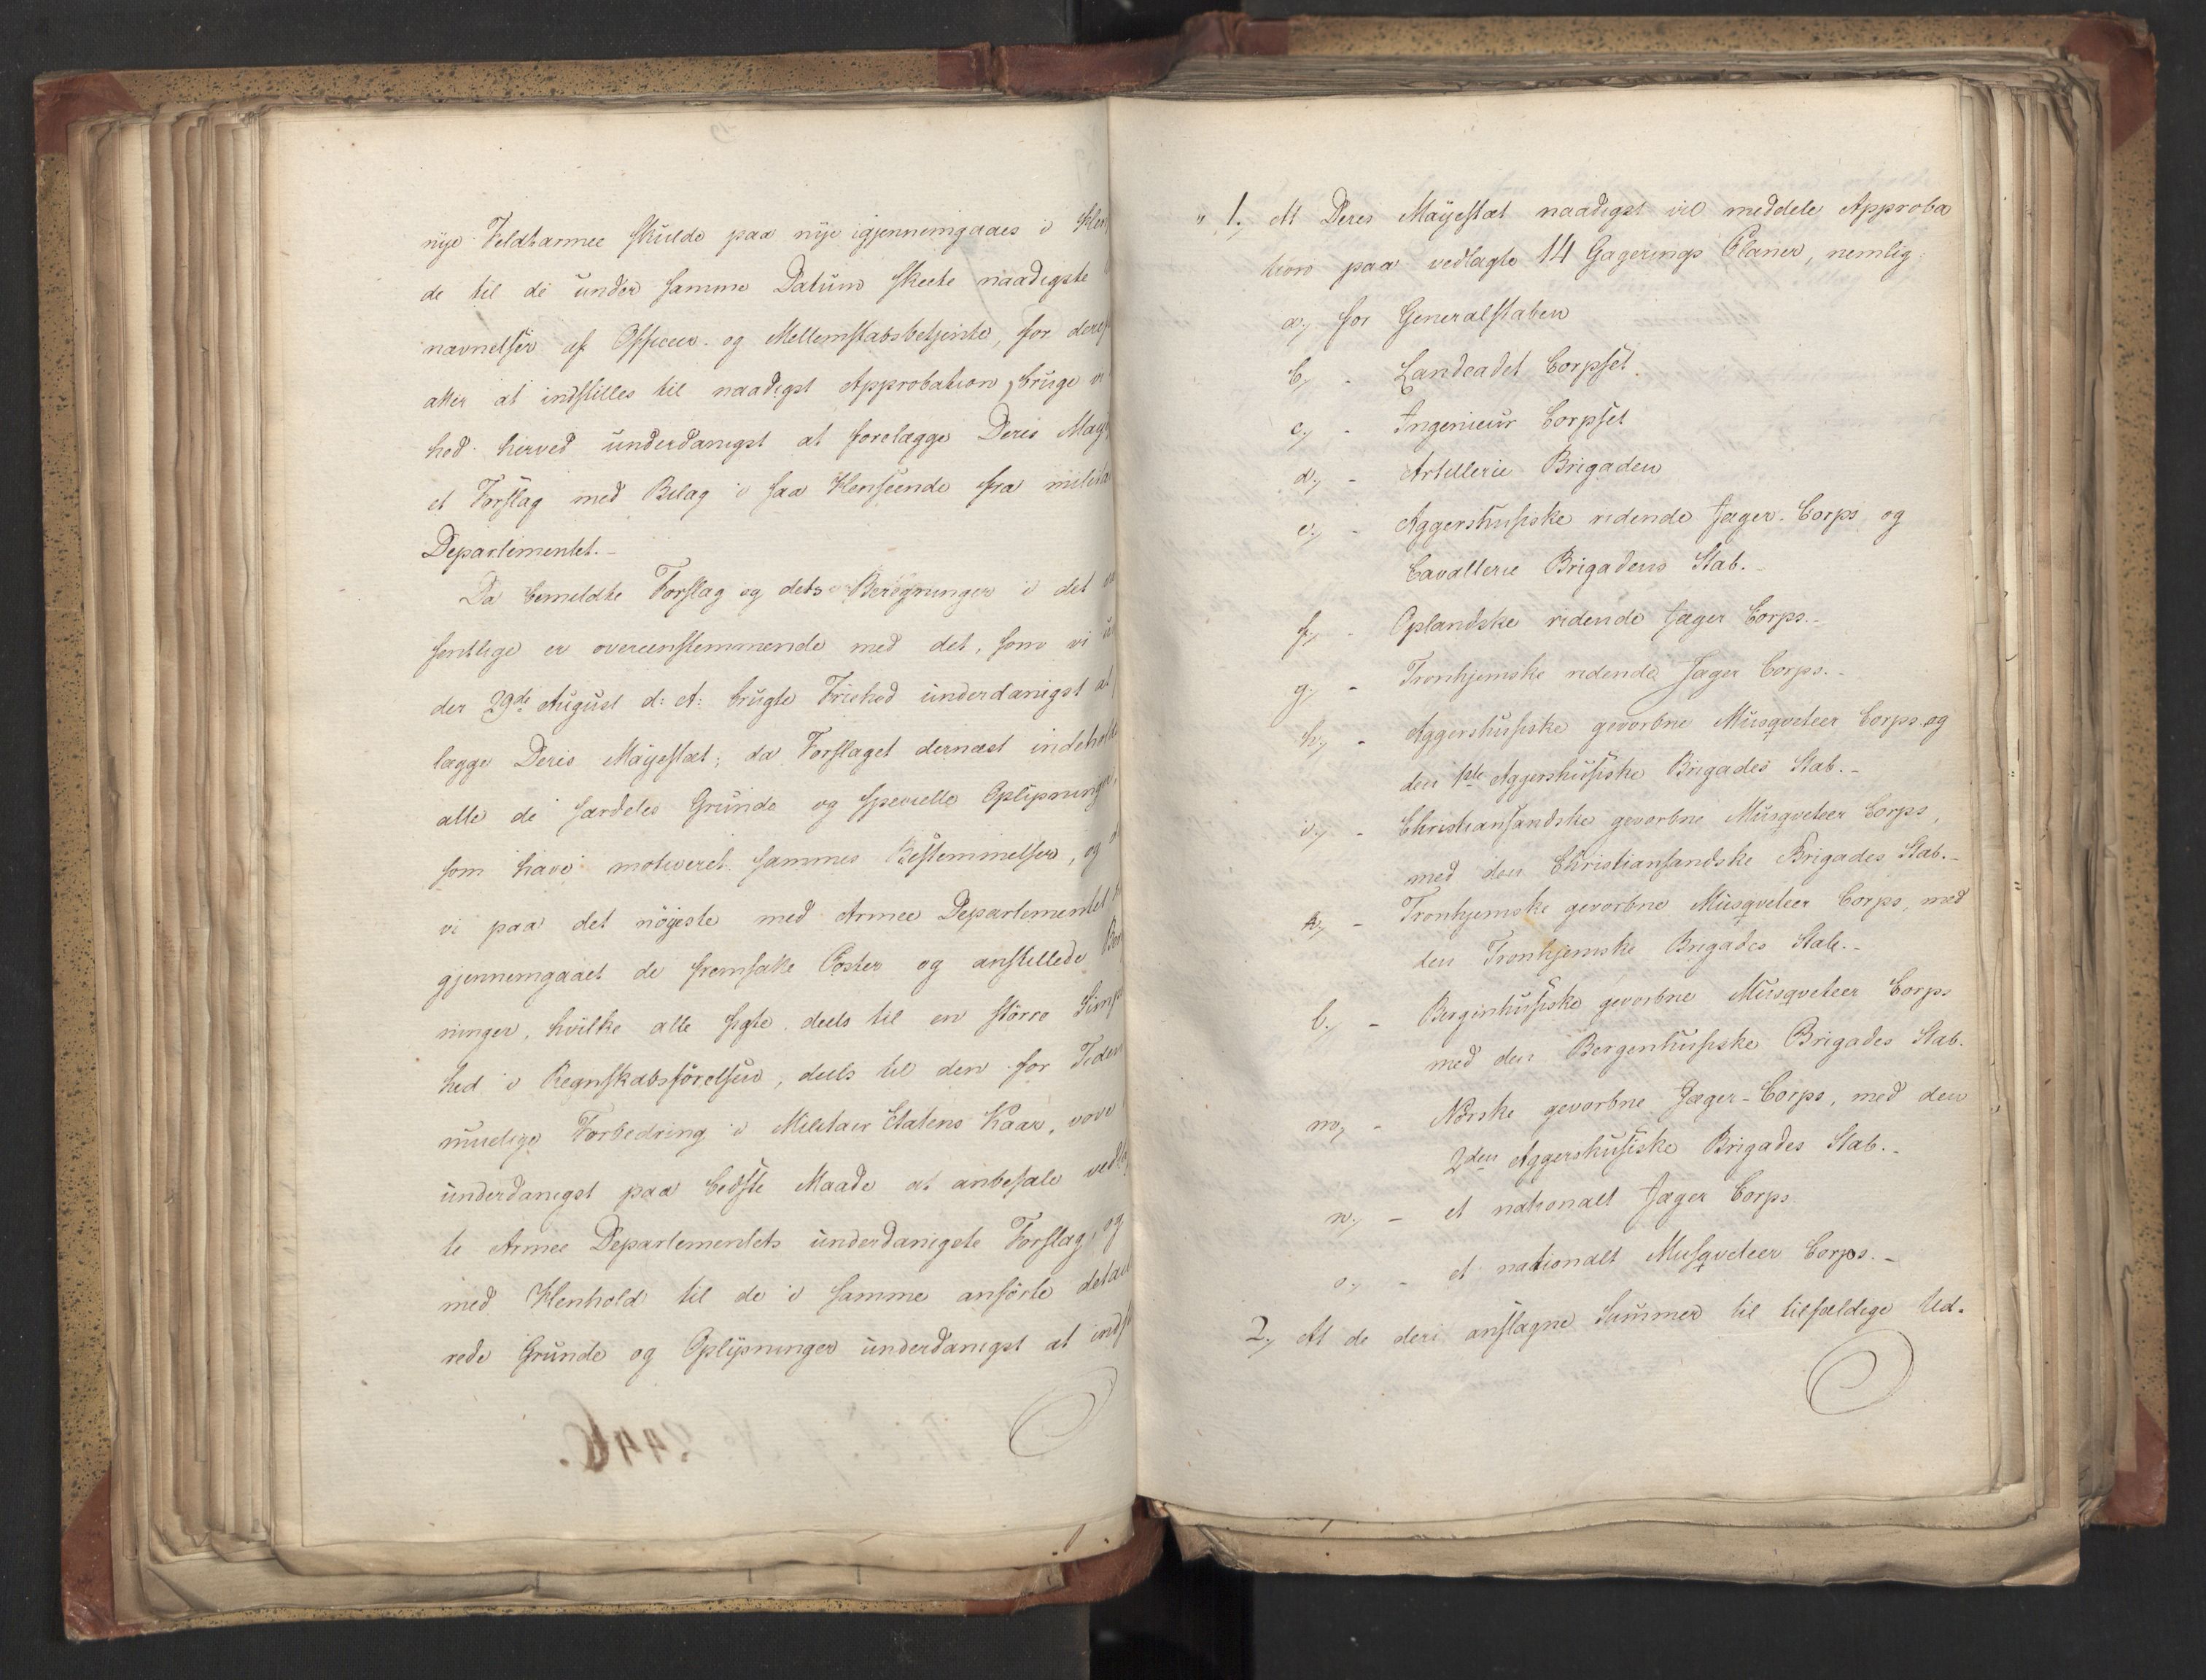 nÿe Feldtarmee skulde paa nÿe igjennemgaaes i Hen
de til de under samme Datum skeete naadigste
nævnelser af Officeer- og Mellemstabsbetjente, for deref
atter at indstilles til naadigst Approbation, bruge vi
hed herved underdanigst at forelægge Deres Maj
et Forslag med Bilag i saa Henseende fra milita
Departementet.-
Da bemeldte Forslag og dets Beregninger i det
sentlige er overeenstemmende med det, som vi un
der 29de August d: A: brugte Friehed underdanigst at
lægge Deres Mayestæt; da Forslaget dernæst indehold
alle de særdeles Grunde og specielle Oplysninger,
som have motiveret sammes Bestemmelser, og
vi paa det nöyeste med Armee Departementet
gjennemgaaet de fremsatte Poster og anstillede Ber
ninger, hvilke alle sigte deels til en större Simp
hed i Regnskabsförelsen, deels til den for Tiden
muelige Forbedring i Militair Etatens Kaar, vove
underdanigst paa bedste Maade at anbefale vedla
te Armee Departementets underdanigste Forslag, og
med Henhold til de i samme anförte detail
rede Grunde og Oplysninger underdanigst at inds
" 1, At Deres Mayestæt naadigst vil meddele Approba
tion paa vedlagte 14 Gagerings Planer, nemlig:
a, for Generalstaben
b, - Landcadet Corpset.
c, - Ingenieur Corpset
d, - Artillerie Brigaden
e, - Aggershusiske ridende Jæger-Corps og
Cavallerie Brigadens Stab.-
f, - Oplandske ridende Jæger Corps.-
g, - Tronhjemske ridende Jæger Corps.-
h, - Aggershusiske gevorbne Musqveteer Corps og
den 1ste Aggershusiske Brigades Stab.-
i, - Christiansandske gevorbne Musqveteer Corps,
med den Christiansandske Brigades Stab.-
k, - Tronhjemske gevorbne Musqveteer Corps, med
den Tronhjemske Brigades Stab.-
l, - Bergenhusiske gevorbne Musqveteer Corps
med den Bergenhusiske Brigades Stab.
m, - Norske gevorbne Jæger-Corps, med den
2den Aggershusiske Brigades Stab.-
n, - et nationalt Jæger Corps
o, - et nationalt Musqveteer Corps.-
2, At de deri anslagne Summer til tilfældige Ud-